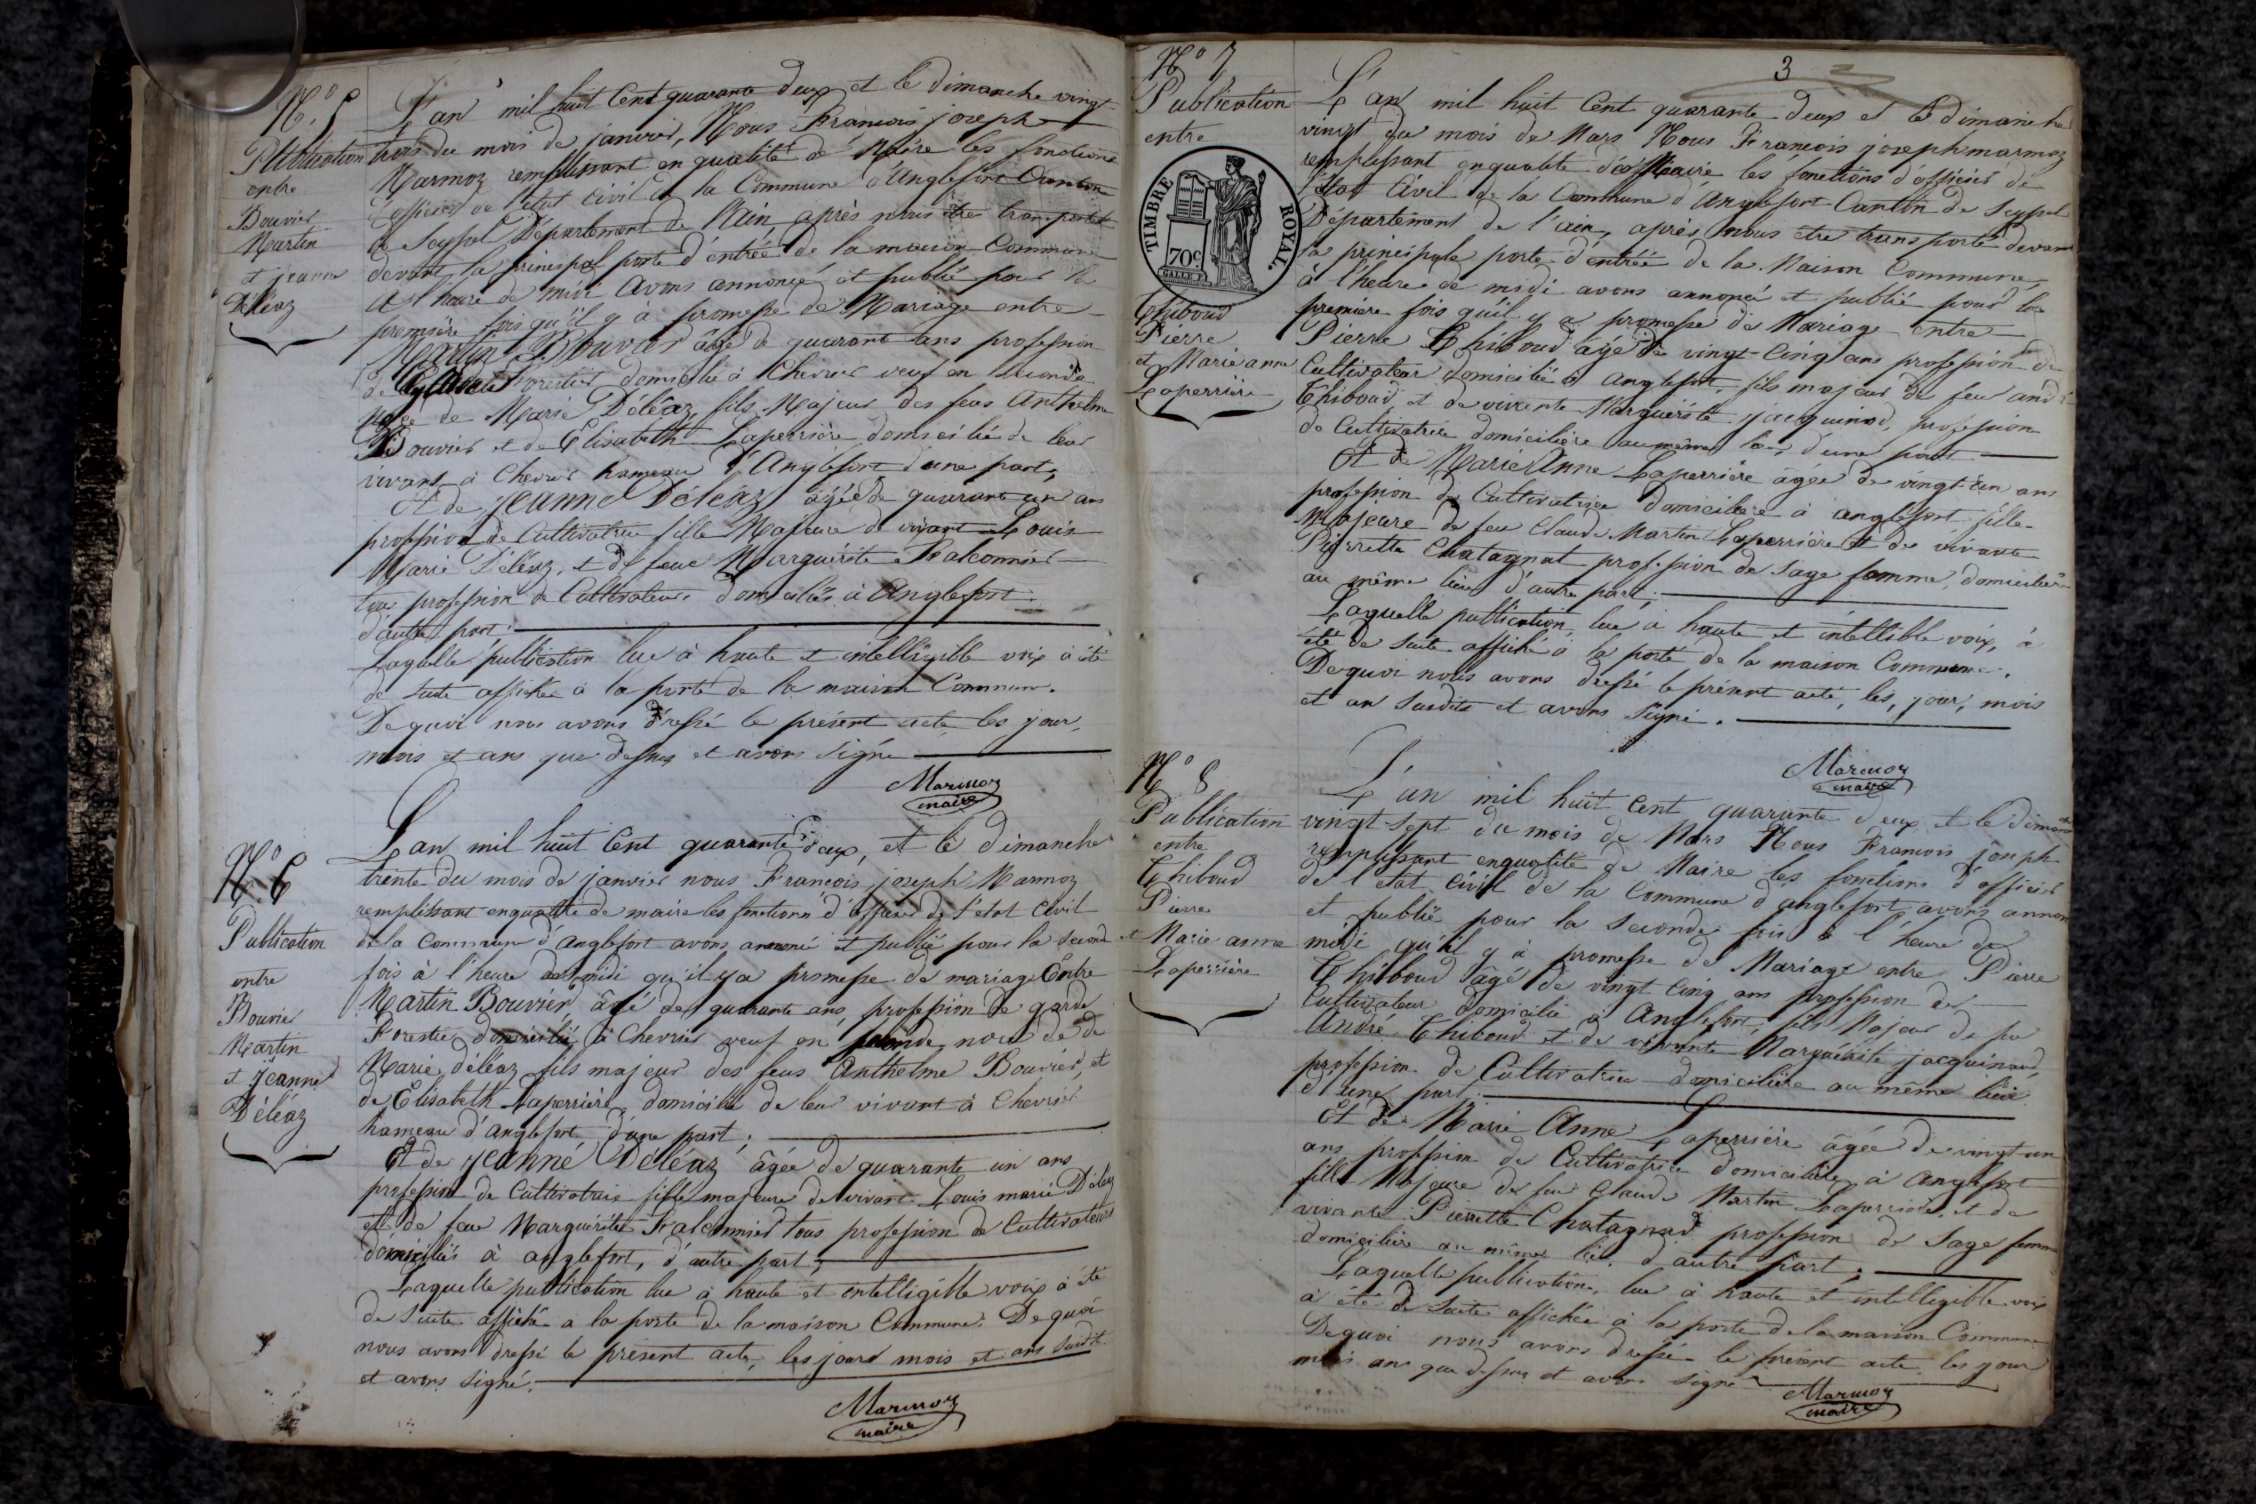 N.º 5
Publication
entre
Bouvier
Martin
et jeanne
Déléaz
L'an mil huit Cent quarante deux et le dimanche vingt
trois du mois de janvier, Nous François joseph
Marmoz remplissant en qualité de Maire les fonctions
d'officier de l'état civil de la Commune d'Anglefort Canton
de Seyssel Département de l'Ain, après nous être transporté
devant la principal porte d'entrée de la maison Commune
à l'heure de midi avons annoncé et publié pour la
première fois qu'il y à promesse de Mariage entre
Martin Bouvier âgé de quarant ans profession
de Garde forestier domicilié à Chevrier veuf en seconde
noce de Marie Déléaz, fils Majeur des feus Anthelme
Bouvier et de Elisabeth Laperrière domiciliée de leur
vivant à Chevrier hameau d'Anglefort d'une part,
Et de Jeanne Déléaz âgée de quarant un ans
profession de Cultivatrice fille Majeure de vivant Louis
Marie Déléaz, et de feue Marguérite Falconnier
tous profession de Cultivateurs domiciliés à Anglefort
d'autre part.
Laquelle publication lue à haute et intelligible voix à été
de suite affichée à la porte de la maison Commune.
De quoi nous avons dressé le présent acte les jour,
mois et ans que dessus et avons signé
Marmoz
maire
N.º 6
Publication
entre
Bouvier
Martin
et Jeanne
Déléaz
L'an mil huit Cent quarante deux, et le dimanche
trente du mois de janvier nous François joseph Marmoz
remplissant en qualité de maire les fonctions d'officier de l'état Civil
de la Commune d'Anglefort avons annoncé et publié pour la seconde
fois à l'heure de midi qu'il y a promesse de mariage Entre
Martin Bouvier, âgé de quarante ans, profession de garde
Forestier domicilié à Chevrier veuf en seconde noce de
Marie déléaz fils majeur des feus Anthelme Bouvier, et
de Elisabeth Laperrière, domiciliée de leur vivant à Chevrier
hameau d'anglefort d'une part;
Et de Jeanne Déléaz âgée de quarante un ans
profession de Cultivatrice fille majeure de vivant Louis marie Déléaz
et de feue Marguérite Falconnier tous profession de Cultivateurs
domiciliés à anglefort, d'autre part;
Laquelle publication lue à haute et intelligible voix à été
de suite affichée a la porte de la maison Commune. De quoi
nous avons dressé le présent acte, les jours mois et ans susdits
et avons signé.
Marmoz
maire
3
Nº 7
Publication
entre
TIMBRE ROYAL.
70c
Thiboud
Pierre
et Marie anne
Laperrière
L'an mil huit Cent quarante deux et le dimanche
vingt du mois de Mars Nous François joseph marmoz
remplissant en qualité de Maire les fonctions d'officier de
l'état Civil de la Commune d'Anglefort Canton de Seyssel
Département de l'ain, après nous être transporté devant
la principale porte d'entrée de la Maison Commune,
à l'heure de midi avons annoncé et publié pour la
première fois qu'il y a promesse de Mariage entre
Pierre Thiboud âgé de vingt-Cinq ans profession de
Cultivateur domicilié à Anglefort, fils majeur de feu andré
Thiboud et de vivante Marguérite jacquinod, profession
de Cultivatrice domicilière au même lieu, d'une part
Et de Marie Anne Laperrière âgée de vingt-un ans
profession de Cultivatrice domicilière à anglefort fille
Majeure de feu Claude Martin Laperrière et de vivante
Pierrette Chatagnat profession de sage femme, domicilière
au même lieu d'autre part.
Laquelle publication, lue à haute et intellible voix, à
été de suite affiché à la porte de la maison Commune.
De quoi nous avons dressé le présent acte, les, jour, mois
et an susdits et avons signé.
Marmoz
maire
Nº 8
Publication
entre
Thiboud
Pierre
et Marie anne
Laperrière
L'an mil huit Cent quarante deux et le dimanche
vingt-sept du mois de Mars Nous François joseph
remplissant en qualité de Maire les fonctions d'officier
de l'état civil de la Commune d'anglefort avons annoncé
et publié pour la seconde fois à l'heure de
midi qu'il y à promesse de Mariage entre Pierre
Thiboud âgé de vingt cinq ans profession de
Cultivateur domicilié à Anglefort, fils Majeur de feu
André Thiboud et de vivante Marguérite jacquinod,
profession de Cultivatrice domicilière au même lieu
d'une part.
Et de Marie Anne Laperrière âgée de vingt-un
ans profession de Cultivatrice domicilière à Anglefort
fille Majeure de feu Claude Martin Laperrière, et de
vivante Pierrette Chatagnat profession de sage femme
domicilière au même lieu. d'autre part.
Laquelle publication, lue à haute et intelligible voix
à été de suite affichée à la porte de la maison Commune
De quoi nous avons dressé le présent acte les jour
mois ans que dessus et avons signé
Marmoz
maire